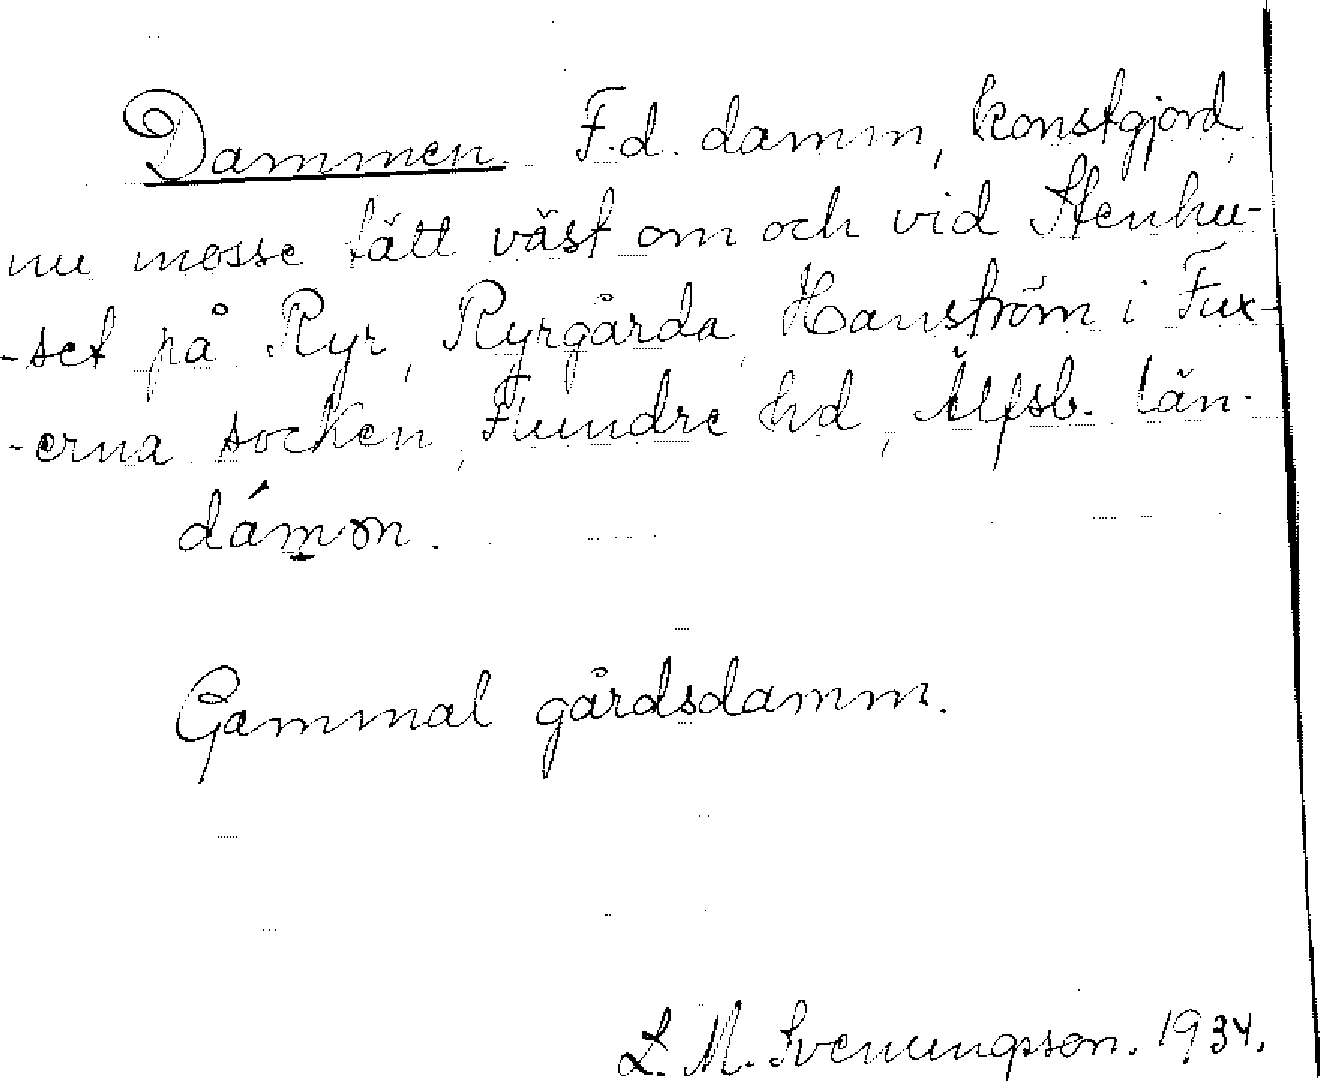 Dammen F.d. damm, konstgjord,
nu mosse tätt väst om och vid Stenhu-
-set på Ryr, Ryrgårda, Hanström i Fux-
-erna socken, Flundre hd, Älfsb. län.
dámøn.
Gammal gårdsdamm.
L. M. Svenungsson. 1934.